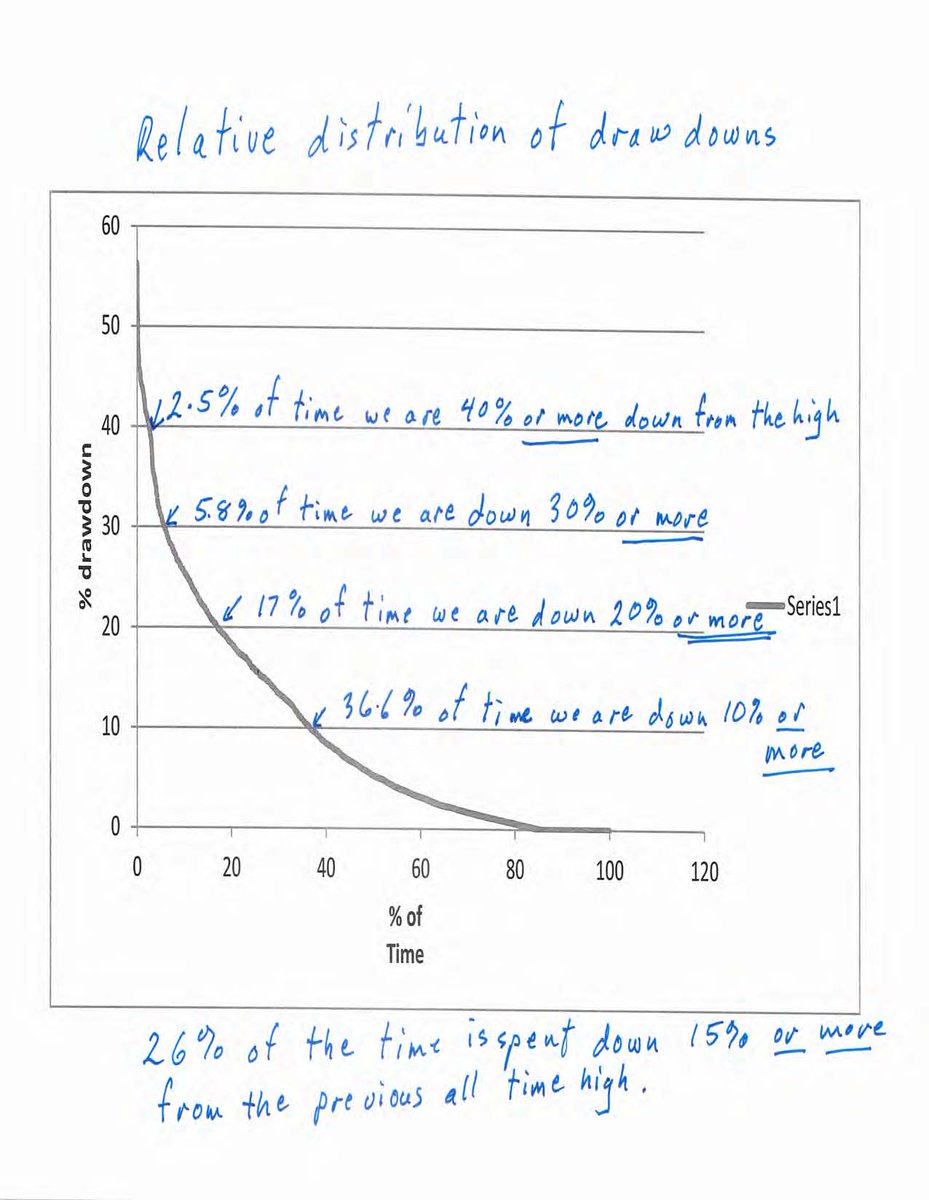 Relative distribution of drawdowns
60
50
2.5% of time we are 40% or more down from the high
40
5.8% of time we are down 30% or more
30
17% of time we are down 20% or more
Series1
20
36.6% of time we are down 10% or
more
10
0
% drawdown
0 20 40 60 80 100 120
% of
Time
26% of the time is spent down 15% or more
from the previous all time high.